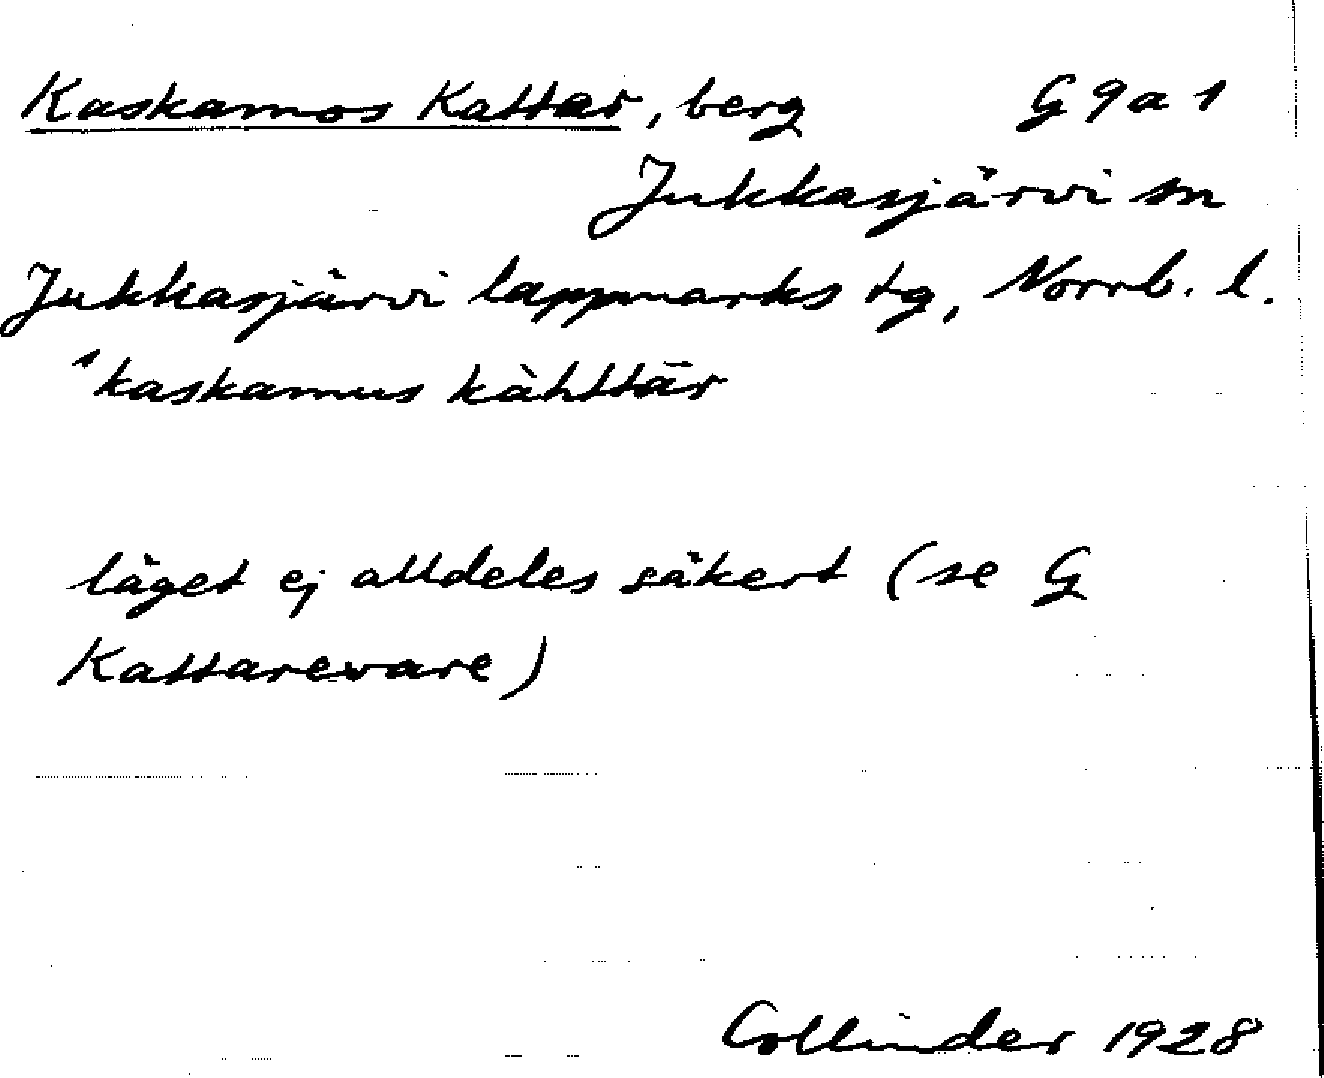 Kaskamos Kattar, berg G 9 a 1
Jukkasjärvi sn
Jukkasjärvi lappmarks tg, Norrb. l.
ˈkaskamus kàhttār
läget ej alldeles säkert (se G
Kattarevare)
Collinder 1928